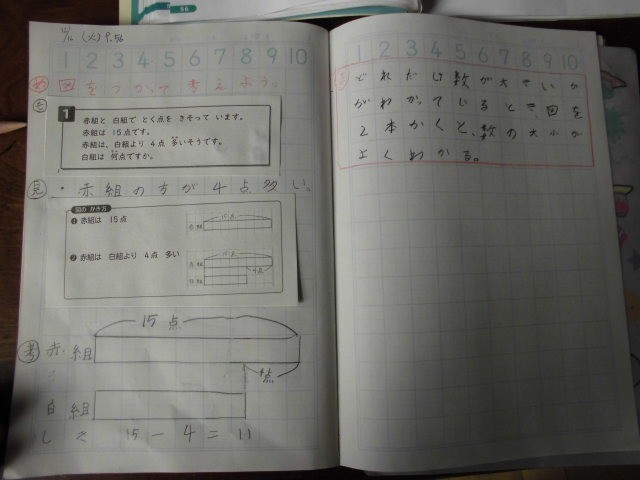 56
12/16 (火) P.56
1 2 3 4 5 6 7 8 9 10
め 図をつかって考えよう。
も
1
赤組と 白組で とく点を きそって います。
赤組は 15点です。
赤組は、白組より 4点 多いそうです。
白組は 何点ですか。
見 ・赤組の方が4点多い。
図の かき方
❶ 赤組は 15点
15点
赤組
❷ 赤組は 白組より 4点 多い
15点
赤組
4点
白組
考
15点
赤組
4点
白組
しき 15-4=11
1 2 3 4 5 6 7 8 9 10
どれだけ数が大きいか
がわかっているとき、図を
2本かくと、数の大小が
よくわかる。